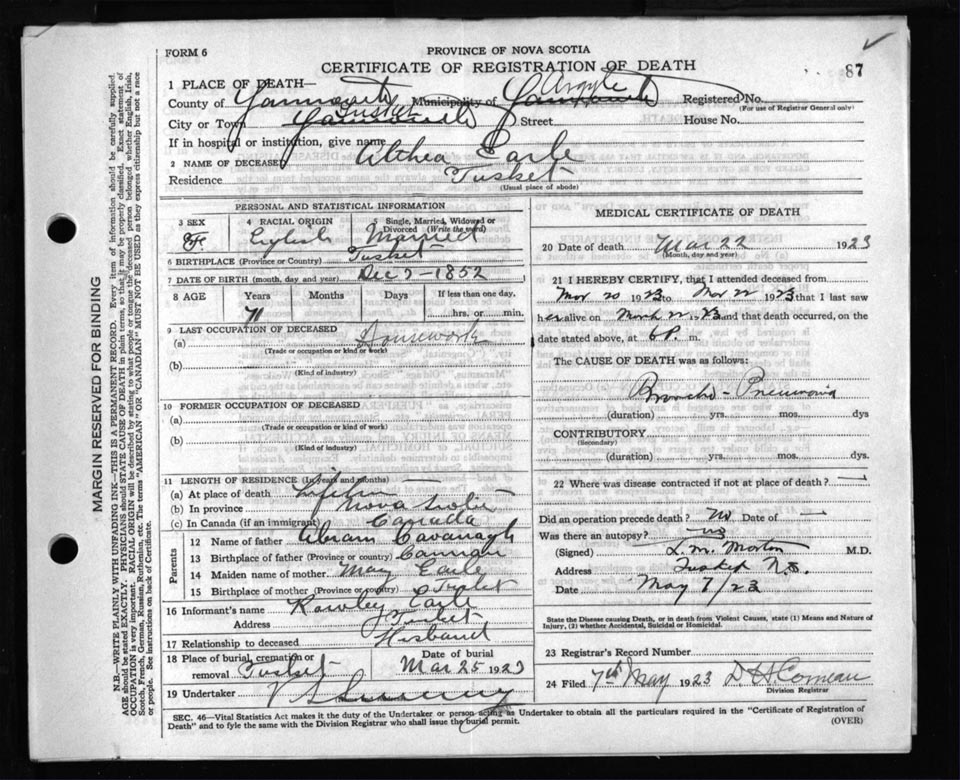 FORM 6
PROVINCE OF NOVA SCOTIA
CERTIFICATE OF REGISTRATION OF DEATH
87
1 PLACE OF DEATH—
County of Yarmouth Municipality of Argyle Yarmouth Registered No.
(For use of Registrar General only)
City or Town Tusket Yarmouth Street House No.
If in hospital or institution, give name
2 NAME OF DECEASED Althea Earle
Residence Tusket
(Usual place of abode)
MARGIN RESERVED FOR BINDING
N.B.—WRITE PLAINLY WITH UNFADING INK—THIS IS A PERMANENT RECORD. Every item of information should be carefully supplied.
AGE should be stated EXACTLY. PHYSICIANS should STATE CAUSE OF DEATH in plain terms, so that it may be properly classified. Exact statement of
OCCUPATION is very important. RACIAL ORIGIN will be described by stating to what people or tongue the deceased person belonged whether English, Irish,
Scotch, French, German, Russian, Ruthenian, etc. The terms "AMERICAN" OR "CANADIAN" MUST NOT BE USED as they express citizenship but not a race
or people. See instructions on back of Certificate.
PERSONAL AND STATISTICAL INFORMATION
3 SEX
4 RACIAL ORIGIN
English
5 Single, Married, Widowed or
Divorced (Write the word)
Married
6 BIRTHPLACE (Province or Country) Tusket
7 DATE OF BIRTH (month, day and year) Dec 7-1852
8 AGE Years Months Days If less than one day,
71 hrs. or min.
9 LAST OCCUPATION OF DECEASED
(a) Housework
(Trade or occupation or kind of work)
(b)
(Kind of industry)
10 FORMER OCCUPATION OF DECEASED
(a)
(Trade or occupation or kind of work)
(b)
(Kind of industry)
11 LENGTH OF RESIDENCE (In years and months)
(a) At place of death
(b) In province Nova Scotia
(c) In Canada (if an immigrant) Canada
Parents
12 Name of father Abram Cavanagh
13 Birthplace of father (Province or country)
14 Maiden name of mother May Earle
15 Birthplace of mother (Province or country) Tusket
16 Informant's name Rowley Earle
Address Tusket
17 Relationship to deceased Husband
18 Place of burial, cremation or
removal Tusket
Date of burial
Mar 25 1923
19 Undertaker
MEDICAL CERTIFICATE OF DEATH
20 Date of death Mar 22 1923
(Month, day and year)
21 I HEREBY CERTIFY, that I attended deceased from
Mar 20 1923 to Mar 22 1923 that I last saw
her alive on March 22 1923 and that death occurred, on
date stated above, at 6 P. m.
The CAUSE OF DEATH was as follows:
Broncho-Pneumonia
(duration) yrs. mos. dys
CONTRIBUTORY
(Secondary)
(duration) yrs. mos. dys.
22 Where was disease contracted if not at place of death? —
Did an operation precede death? No Date of —
Was there an autopsy? no
(Signed) L. M. Morton M.D.
Address Tusket N.S.
Date May 7/23
State the Disease causing Death, or in death from Violent Causes, state (1) Means and Nature of
Injury, (2) whether Accidental, Suicidal or Homicidal.
23 Registrar's Record Number
24 Filed 7th May 1923 D H Comeau
Division Registrar
SEC. 46—Vital Statistics Act makes it the duty of the Undertaker or person acting as Undertaker to obtain all the particulars required in the "Certificate of Registration of
Death" and to fyle the same with the Division Registrar who shall issue the burial permit.
(OVER)